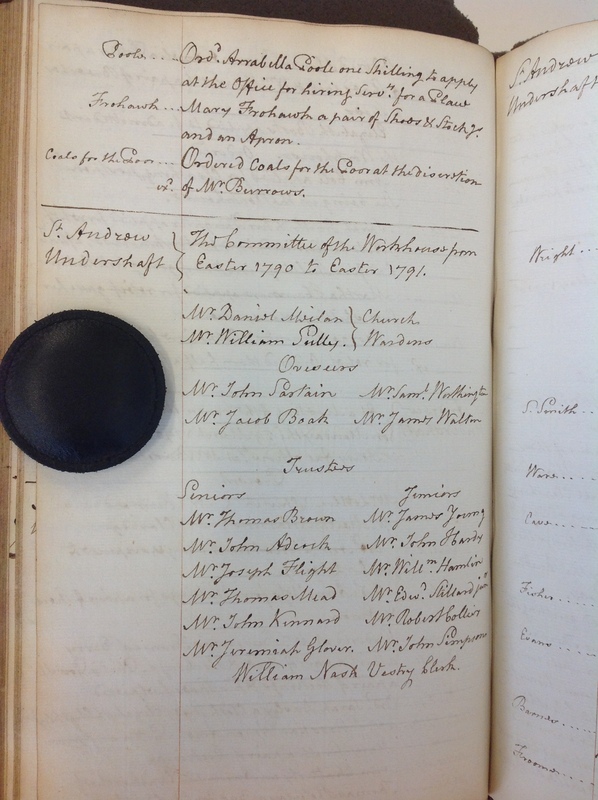 Poole.... Ord.d Arrabella Poole one Shilling to apply
at the Office for hiring Serv.ts for a Place
Frohawk... Mary Frohawk a pair of Shoes & Stock.gs
and an Apron.
Coals for the Poor... Ordered Coals for the Poor at the discretion
of Mr. Burrows.
St. Andrew
Undershaft
The Committee of the Workhouse from
Easter 1790 to Easter 1791.
Mr. Daniel Meilan } Church
Mr. William Pulley. } Wardens
Overseers
Mr. John Sartain Mr. Sam.l Worthington
Mr. Jacob Boak Mr. James Walton
Trustees
Seniors Juniors
Mr. Thomas Brown Mr. James Young
Mr. John Adcock Mr. John Hardy
Mr. Joseph Flight Mr. Will.m Hamlin
Mr. Thomas Mead Mr. Edw.d Sillard jun.r
Mr. John Kinnard Mr. Robert Collier
Mr. Jeremiah Glover. Mr. John Simpson
William Nash Vestry Clerk.
St. Andrew
Undershaft
Wright...
S. Smith...
Ware....
Cave....
Fisher....
Evans....
Barnes.....
Froome....